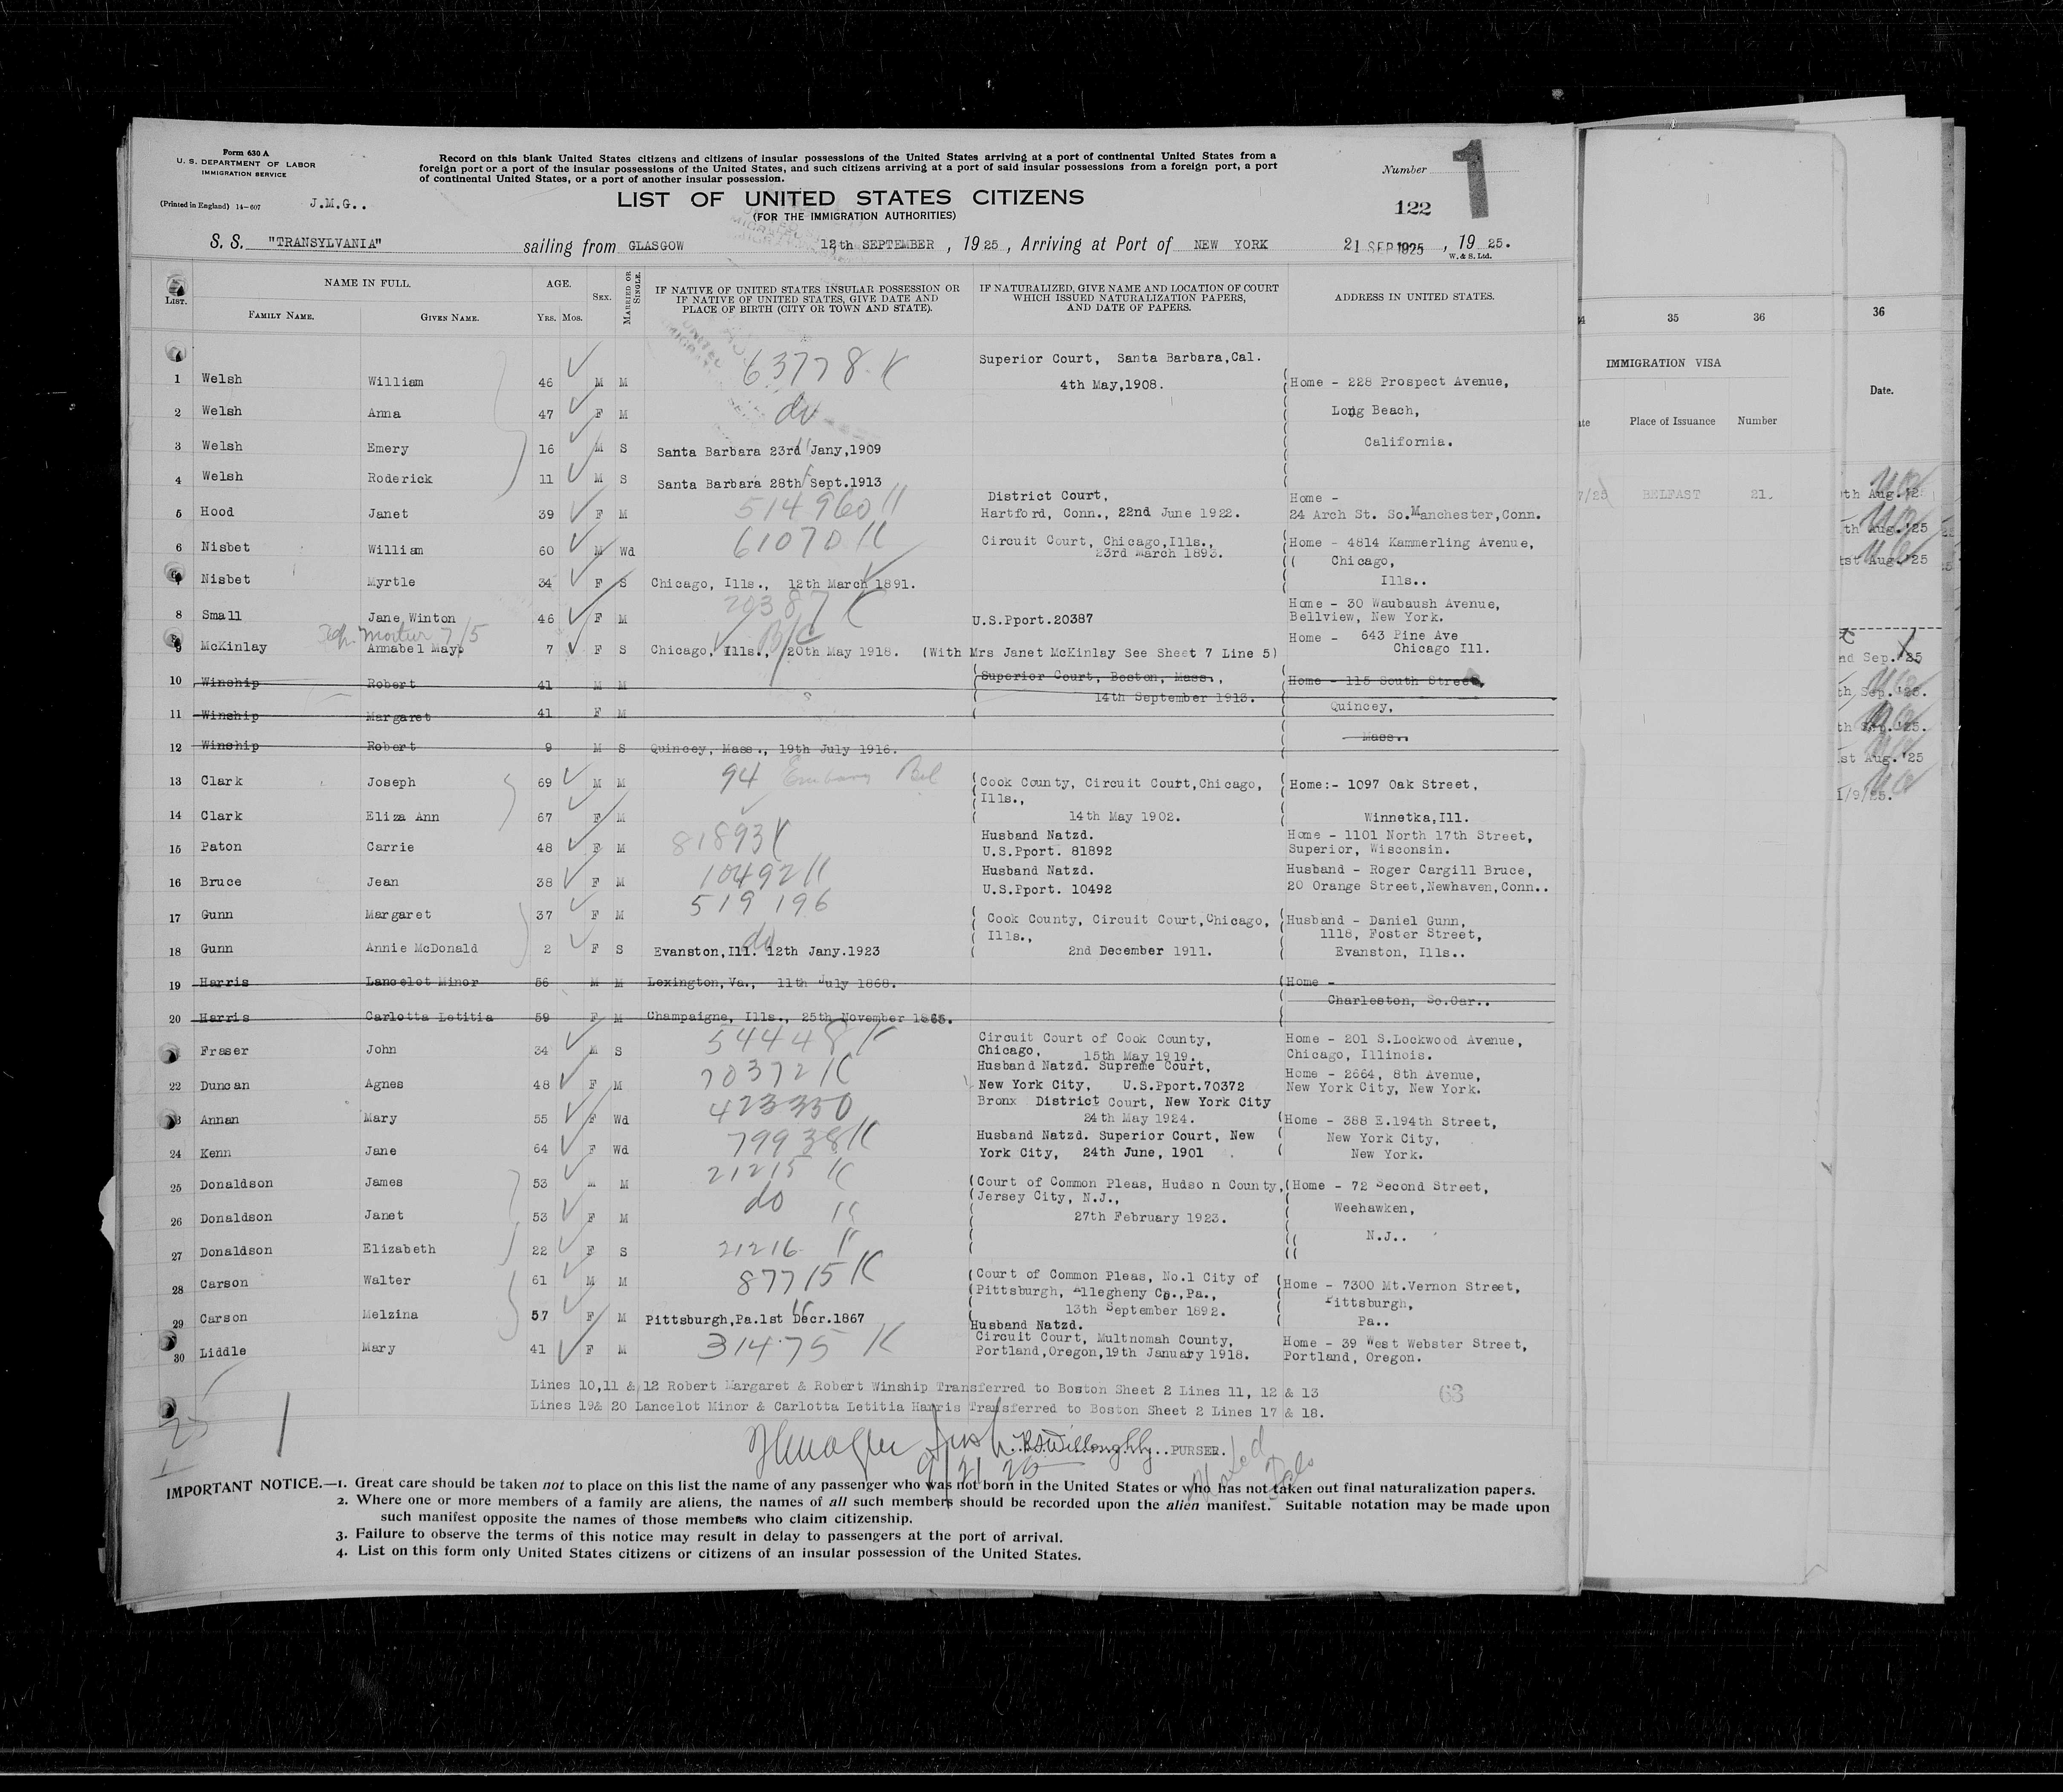 Form 630 A
U. S. DEPARTMENT OF LABOR
IMMIGRATION SERVICE
(Printed in England) 14-607
J.M.G..
Record on this blank United States citizens and citizens of insular possessions of the United States arriving at a port of continental United States from a
foreign port or a port of the insular possessions of the United States, and such citizens arriving at a port of said insular possessions from a foreign port, a port
of continental United States, or a port of another insular possession.
Number 1
122
LIST OF UNITED STATES CITIZENS
(FOR THE IMMIGRATION AUTHORITIES)
S. S. "TRANSYLVANIA" sailing from GLASGOW 12th SEPTEMBER , 19 25 , Arriving at Port of NEW YORK 21 SEP 1925 , 19 25.
W. & S. Ltd.
LIST. NAME IN FULL. AGE. SEX. MARRIED OR SINGLE. IF NATIVE OF UNITED STATES INSULAR POSSESSION OR IF NATIVE OF UNITED STATES, GIVE DATE AND PLACE OF BIRTH (CITY OR TOWN AND STATE). IF NATURALIZED, GIVE NAME AND LOCATION OF COURT WHICH ISSUED NATURALIZATION PAPERS, AND DATE OF PAPERS. ADDRESS IN UNITED STATES.
FAMILY NAME. GIVEN NAME. YRS. MOS.
63778 K Superior Court, Santa Barbara,Cal.
1 Welsh William 46 M M 4th May,1908. Home - 228 Prospect Avenue,
2 Welsh Anna 47 F M do Long Beach,
3 Welsh Emery 16 M S Santa Barbara 23rd Jany,1909 California.
4 Welsh Roderick 11 M S Santa Barbara 28th Sept.1913
District Court, Home -
5 Hood Janet 39 F M 514960 K Hartford, Conn., 22nd June 1922. 24 Arch St. So.Manchester,Conn.
6 Nisbet William 60 M Wd 61070 K Circuit Court, Chicago,Ills., Home - 4814 Kammerling Avenue,
23rd March 1893. Chicago,
7 Nisbet Myrtle 34 F S Chicago, Ills., 12th March 1891. Ills..
20387 K Home - 30 Waubaush Avenue,
8 Small Jane Winton 46 F M U.S.Pport.20387 Bellview, New York.
7/5 B/C Home - 643 Pine Ave
9 McKinlay Annabel May 7 F S Chicago, Ills., 20th May 1918. (With Mrs Janet McKinlay See Sheet 7 Line 5) Chicago Ill.
10 Winship Robert 41 M M Superior Court, Boston, Mass., Home - 115 South Street,
14th September 1913.
11 Winship Margaret 41 F M Quincey,
12 Winship Robert 9 M S Quincey, Mass., 19th July 1916. Mass..
94
13 Clark Joseph 69 M M Cook County, Circuit Court,Chicago, Home:- 1097 Oak Street,
Ills.,
14 Clark Eliza Ann 67 F M 14th May 1902. Winnetka,Ill.
Husband Natzd. Home - 1101 North 17th Street,
15 Paton Carrie 48 F M 81893 K U.S.Pport. 81892 Superior, Wisconsin.
Husband Natzd. Husband - Roger Cargill Bruce,
16 Bruce Jean 38 F M 10492 K U.S.Pport. 10492 20 Orange Street,Newhaven,Conn..
17 Gunn Margaret 37 F M 519 196 Cook County, Circuit Court,Chicago, Husband - Daniel Gunn,
Ills., 1118, Foster Street,
18 Gunn Annie McDonald 2 F S do Evanston,Ill. 12th Jany.1923 2nd December 1911. Evanston, Ills..
19 Harris Lancelot Minor 56 M M Lexington,Va., 11th July 1868. Home -
Charleston, So.Car..
20 Harris Carlotta Letitia 59 F M Champaigne, Ills., 25th November 1865.
54448 K Circuit Court of Cook County, Home - 201 S.Lockwood Avenue,
Fraser John 34 M S Chicago, 15th May 1919. Chicago, Illinois.
Husband Natzd. Supreme Court, Home - 2664, 8th Avenue,
22 Duncan Agnes 48 F M 70372 K New York City, U.S.Pport.70372 New York City, New York.
Bronx District Court, New York City
Annan Mary 55 F Wd 423350 24th May 1924. Home - 388 E.194th Street,
Husband Natzd. Superior Court, New New York City,
24 Kenn Jane 64 F Wd 79938 K York City, 24th June, 1901 New York.
25 Donaldson James 53 M M 21215 K Court of Common Pleas, Hudso n County, Home - 72 Second Street,
Jersey City, N.J., Weehawken,
26 Donaldson Janet 53 F M do K 27th February 1923.
27 Donaldson Elizabeth 22 F S 21216 K N.J..
28 Carson Walter 61 M M 87715 K Court of Common Pleas, No.1 City of Home - 7300 Mt.Vernon Street,
Pittsburgh, Allegheny Co.,Pa., Pittsburgh,
13th September 1892.
29 Carson Melzina 57 F M Pittsburgh,Pa.1st Decr.1867 Pa..
Husband Natzd.
Circuit Court, Multnomah County, Home - 39 West Webster Street,
30 Liddle Mary 41 F M 31475 K Portland,Oregon,19th January 1918. Portland, Oregon.
Lines 10,11 & 12 Robert Margaret & Robert Winship Transferred to Boston Sheet 2 Lines 11, 12 & 13
63
Lines 19& 20 Lancelot Minor & Carlotta Letitia Harris Transferred to Boston Sheet 2 Lines 17 & 18.
25
1
R.S.Willoughby PURSER.
9/21/25
IMPORTANT NOTICE.—1. Great care should be taken not to place on this list the name of any passenger who was not born in the United States or who has not taken out final naturalization papers.
2. Where one or more members of a family are aliens, the names of all such members should be recorded upon the alien manifest. Suitable notation may be made upon
such manifest opposite the names of those members who claim citizenship.
3. Failure to observe the terms of this notice may result in delay to passengers at the port of arrival.
4. List on this form only United States citizens or citizens of an insular possession of the United States.
35 36
IMMIGRATION VISA
Place of Issuance Number
7/25 BELFAST 21.
36
Date.
th Aug.'25
th Aug.'25
1st Aug.'25
nd Sep.'25
th Sep.'25.
th Sep.'25.
1st Aug.'25
1/9/25.